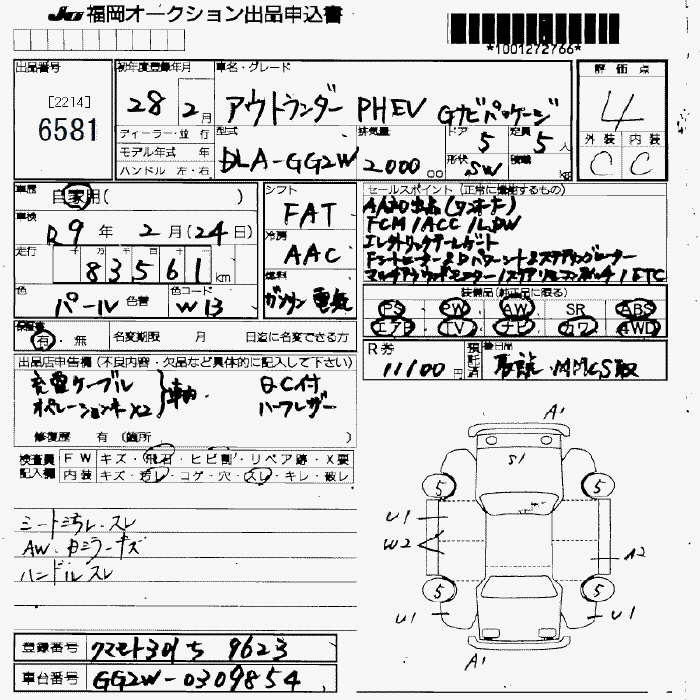 JU福岡オークション出品申込書
*1001272766*
出品番号 初年度登録年月 車名・グレード 評価点
[2214]
6581
28 2月 アウトランダー PHEV Gナビパッケージ 4
ディーラー・並行 型式 排気量 ドア 定員 外装 内装
モデル年式 年 DLA-GG2W 2000cc 5 5人 C C
ハンドル 左・右 形状 SW 積載 kg
車歴 自家用( ) シフト セールスポイント(正常に機能するもの)
車検 R9年 2月(24日) FAT
FCM/ACC/LDW
走行 83561km 冷房 AAC エレクトリックテールゲート
色 パール 色替 色コード W13 燃料 ガソリン 電気
/ETC
装備品(純正品に限る)
PS PW AW SR ABS
エアB TV ナビ カワ 4WD
保証書 有・無 名変期限 月 日迄に名変できる方
R券 11100円 預託済 後日品 取説・MMCS取
出品店申告欄(不良内容・欠品など具体的に記入して下さい)
充電ケーブル 車内 QC付
オペレーションキー×2 ハーフレザー
修復歴 有(箇所 )
検査員 記入欄
FW キズ・飛石・ヒビ割・リペア跡・X要
内装 キズ・汚レ・コゲ・穴・スレ・キレ・破レ
シート汚レ・スレ
AW・Dミラーキズ
ハンドルスレ
A1
S1
5 5
U1
W2
A2
5 5
U1 U1
A1
登録番号 クマモト301ち 9623
車台番号 GG2W-0309854